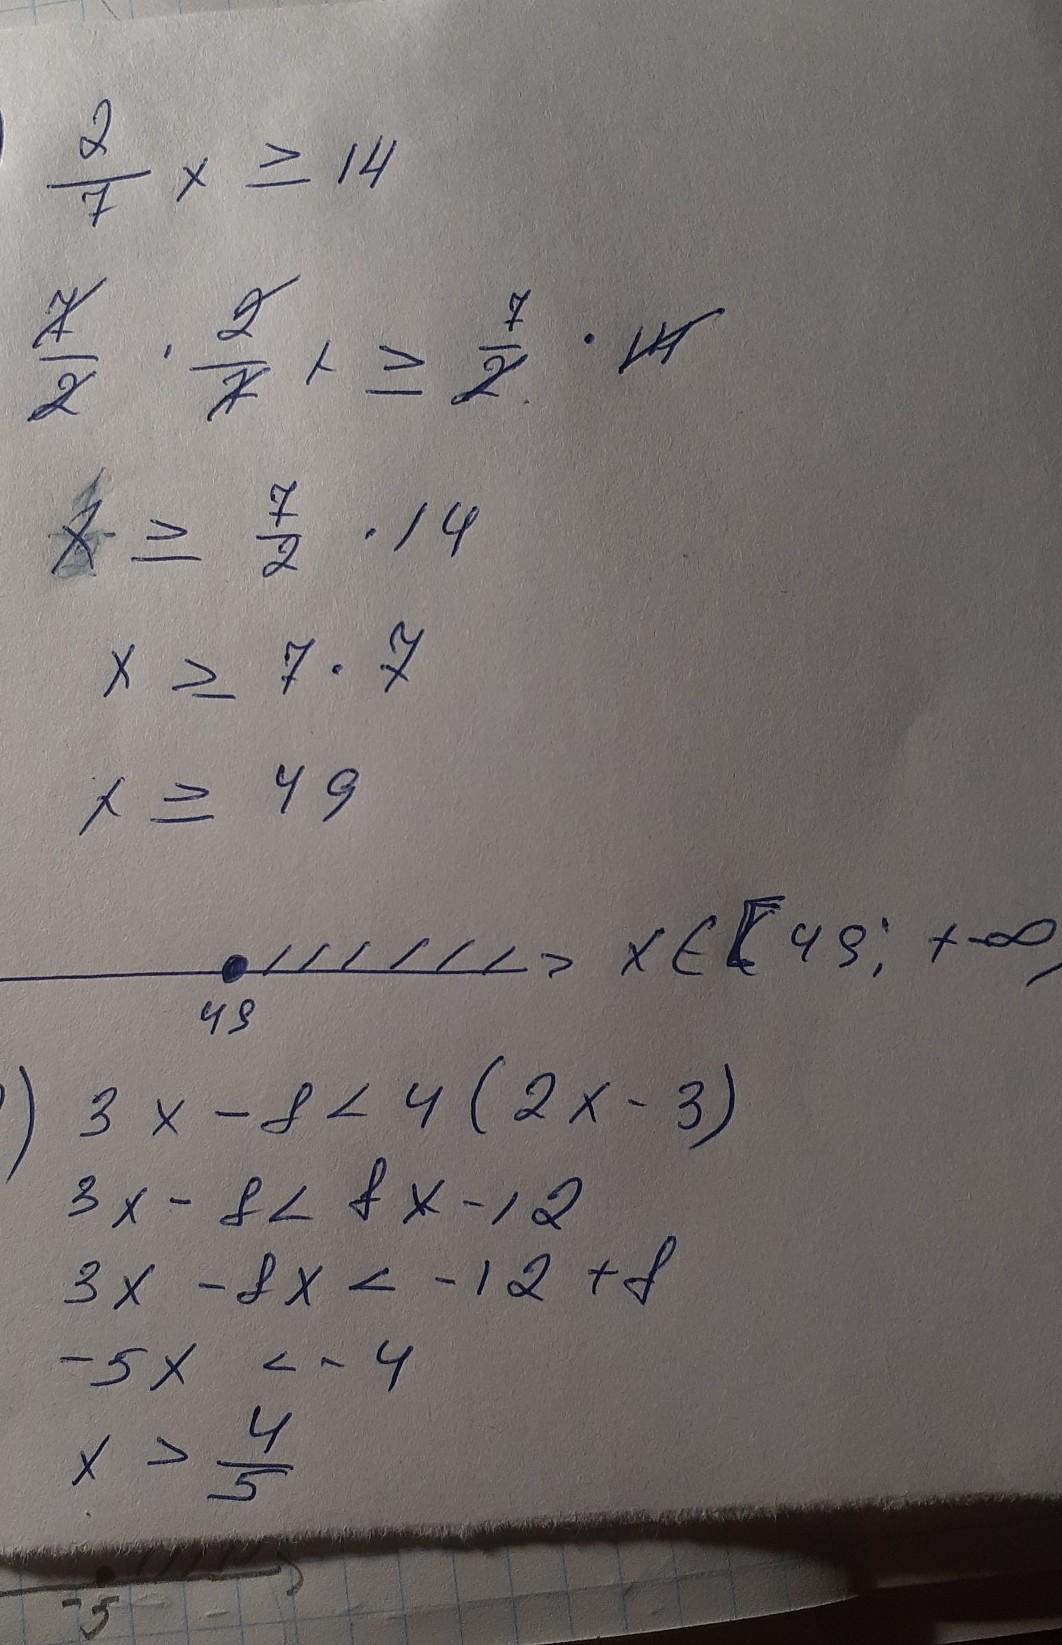 2/7 x ≥ 14
7/2 · 2/7 x ≥ 7/2 · 14
x ≥ 7/2 · 14
x ≥ 7 · 7
x ≥ 49
49 x ∈ [49; +∞)
) 3x - 8 < 4(2x - 3)
3x - 8 < 8x - 12
3x - 8x < -12 + 8
-5x < -4
x > 4/5
-5